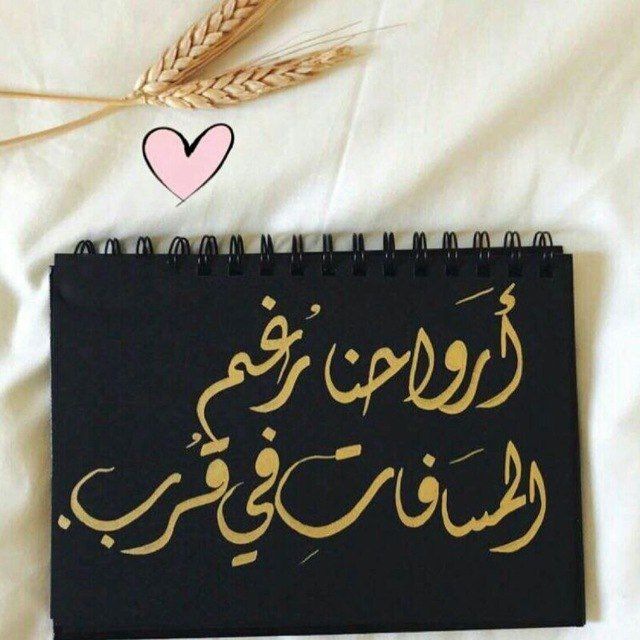 أَرَواحنا رُغم
المسَافاتِ في قُرب.